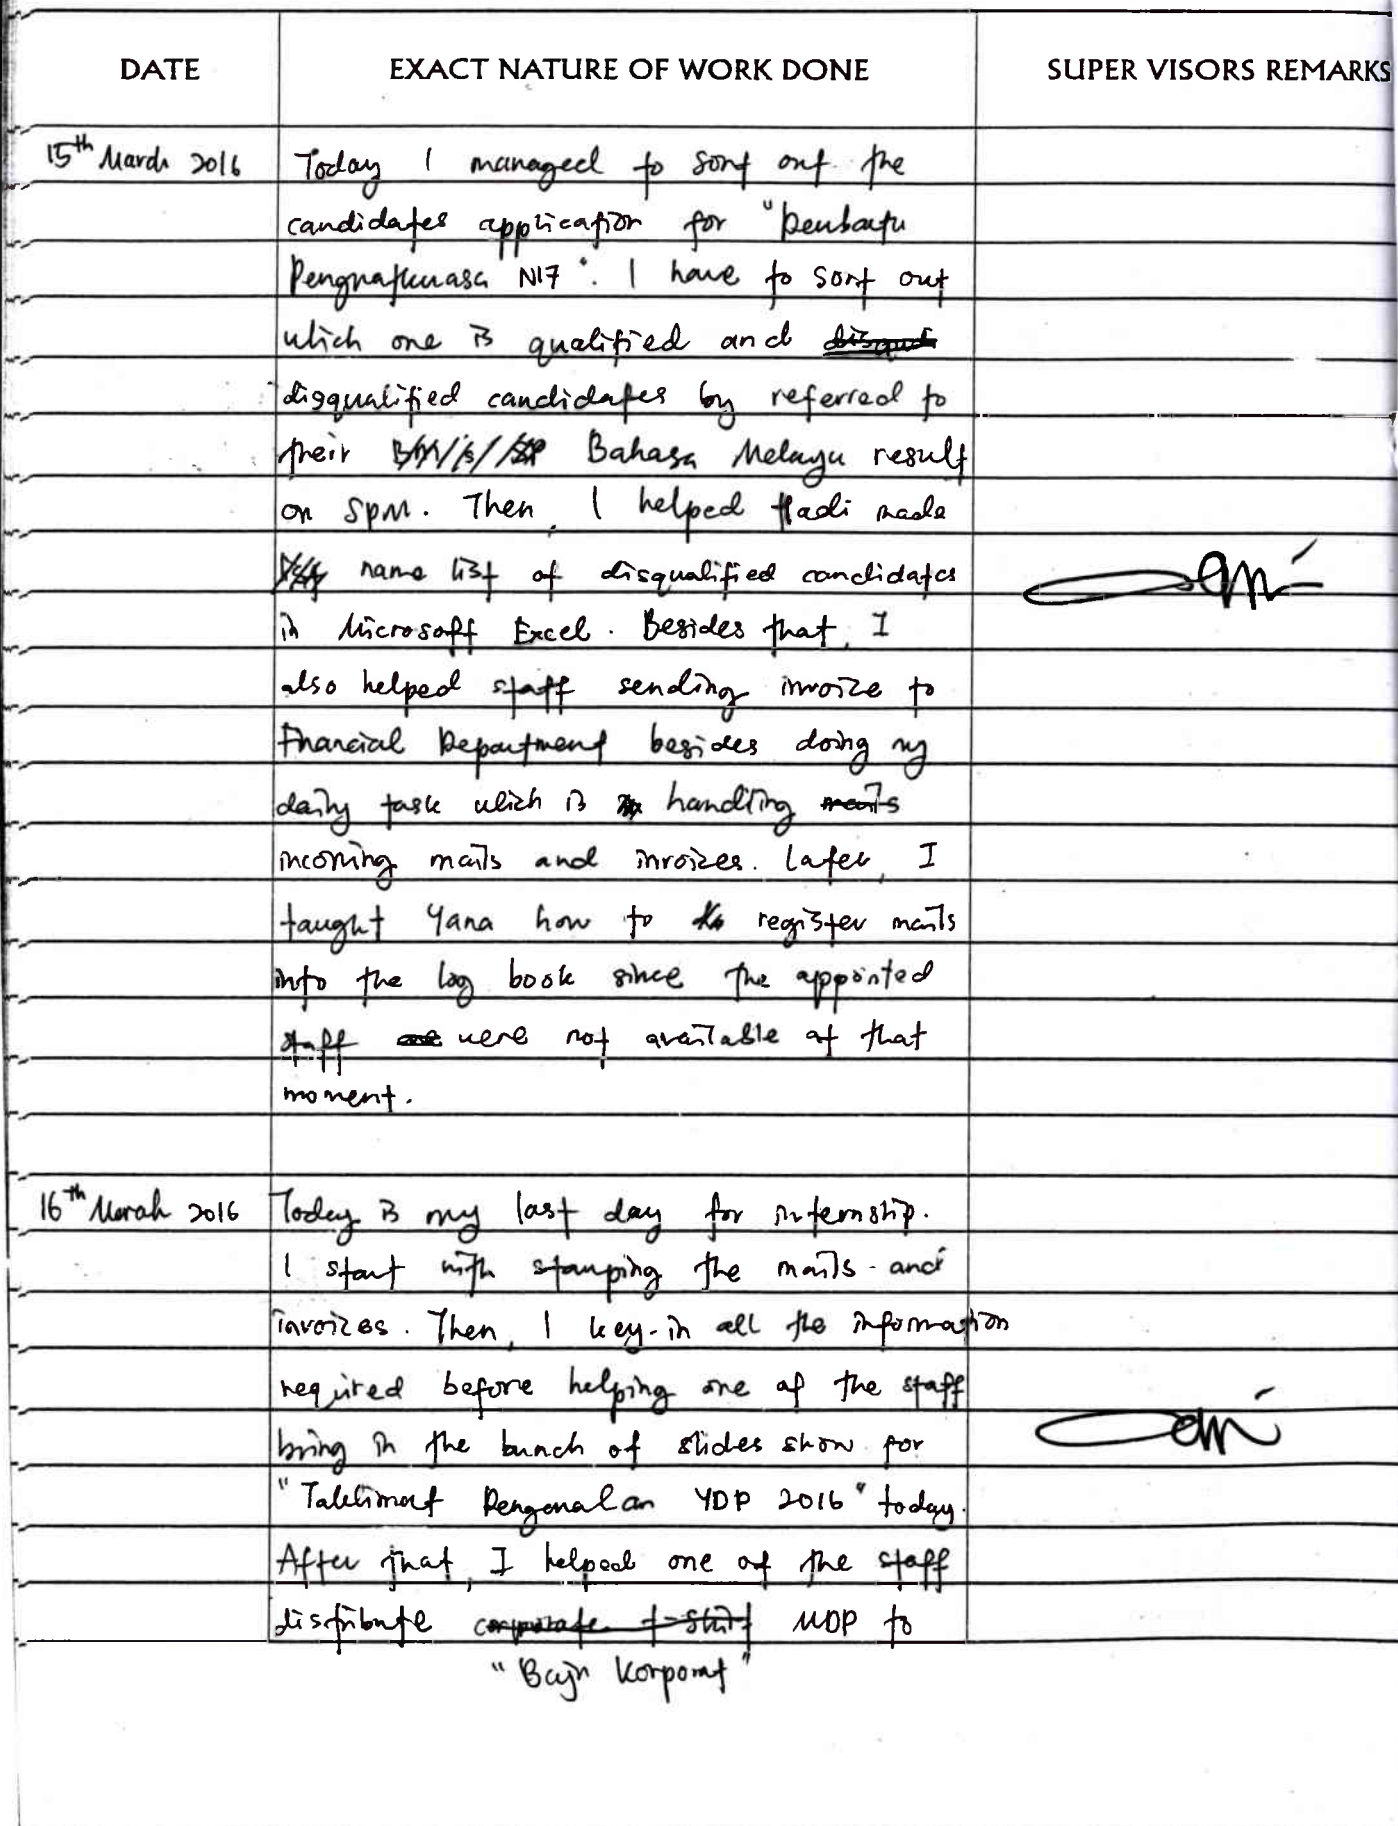 DATE EXACT NATURE OF WORK DONE SUPER VISORS REMARKS
15th March 2016 Today I managed to sort out the
candidates application for "Pembantu
Penguatkuasa N17". I have to sort out
which one is qualified and disqua
disqualified candidates by referred to
their Bahasa Melayu result
on SPM. Then, I helped Hadi made
name list of disqualified candidates
in Microsoft Excel. Besides that, I
also helped staff sending invoice to
Financial Department besides doing my
daily task which is handling mails
incoming mails and invoices. Later, I
taught Yana how to register mails
into the log book since the appointed
staff are were not available at that
moment.
16th March 2016 Today is my last day for internship.
I start with stamping the mails and
invoices. Then, I key-in all the information
required before helping one of the staff
bring in the bunch of slides show for
"Taklimat Pengenalan YDP 2016" today.
After that, I helped one of the staff
distribute corporate t-shirt MDP to
"Baju Korporat"